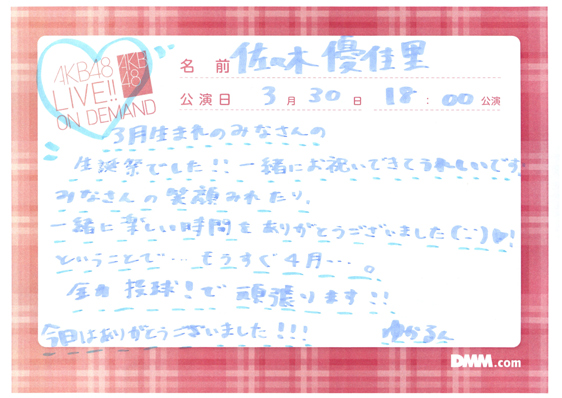 AKB48
LIVE!!
ON DEMAND
AKB
48
名 前 佐々木 優佳里
公演日 3 月 30 日 18 : 00 公演
3月生まれのみなさんの
生誕祭でした!! 一緒にお祝いできてうれしいです
みなさんの笑顔みれたり、
一緒に楽しい時間をありがとうございました(¨)♥!
ということで…もうすぐ4月…。
全力投球!で頑張ります!!
今日はありがとうございました!!!
ゆかるん
DMM.com